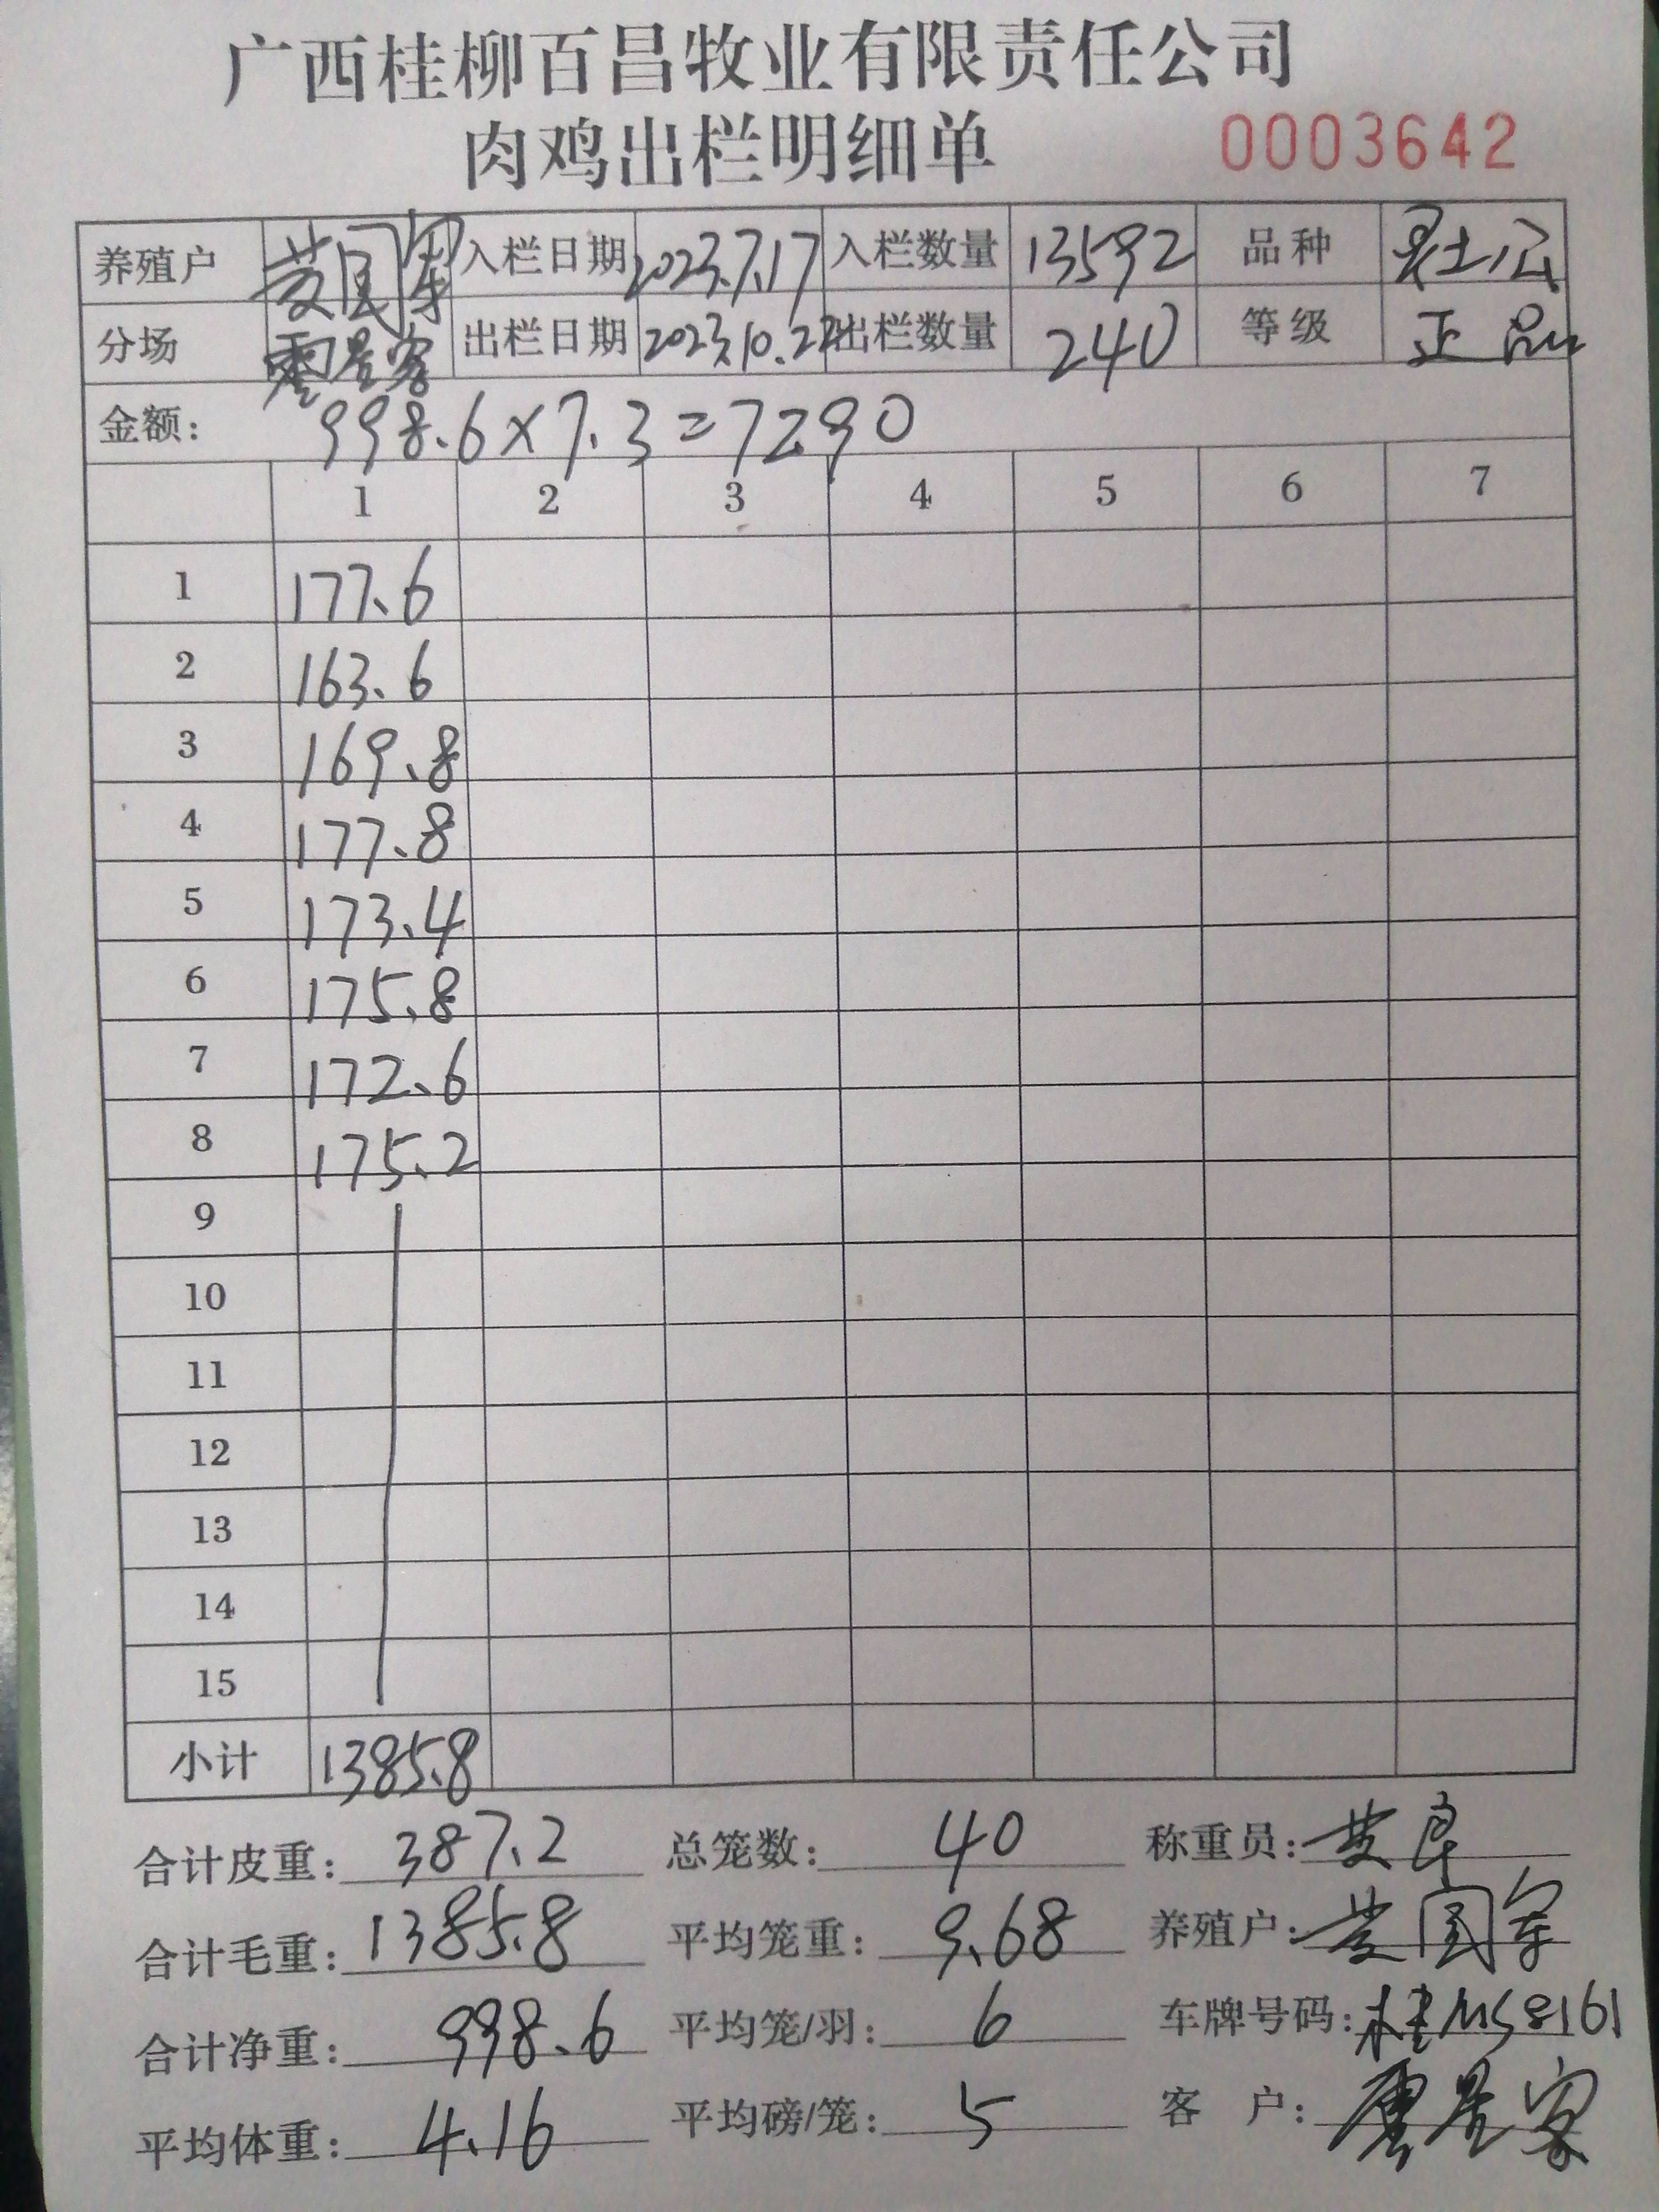 广西桂柳百昌牧业有限责任公司
肉鸡出栏明细单 0003642
养殖户 入栏日期 2023.7.17 入栏数量 13592 品种 土公
分场 出栏日期 2023.10.22 出栏数量 240 等级 正品
金额: 998.6×7.3=7290
1 2 3 4 5 6 7
1 177.6
2 163.6
3 169.8
4 177.8
5 173.4
6 175.8
7 172.6
8 175.2
9
10
11
12
13
14
15
小计 1385.8
合计皮重: 387.2 总笼数: 40 称重员:
合计毛重: 1385.8 平均笼重: 9.68 养殖户: 黄国军
合计净重: 998.6 平均笼/羽: 6 车牌号码: 桂MS8161
平均体重: 4.16 平均磅/笼: 5 客户: